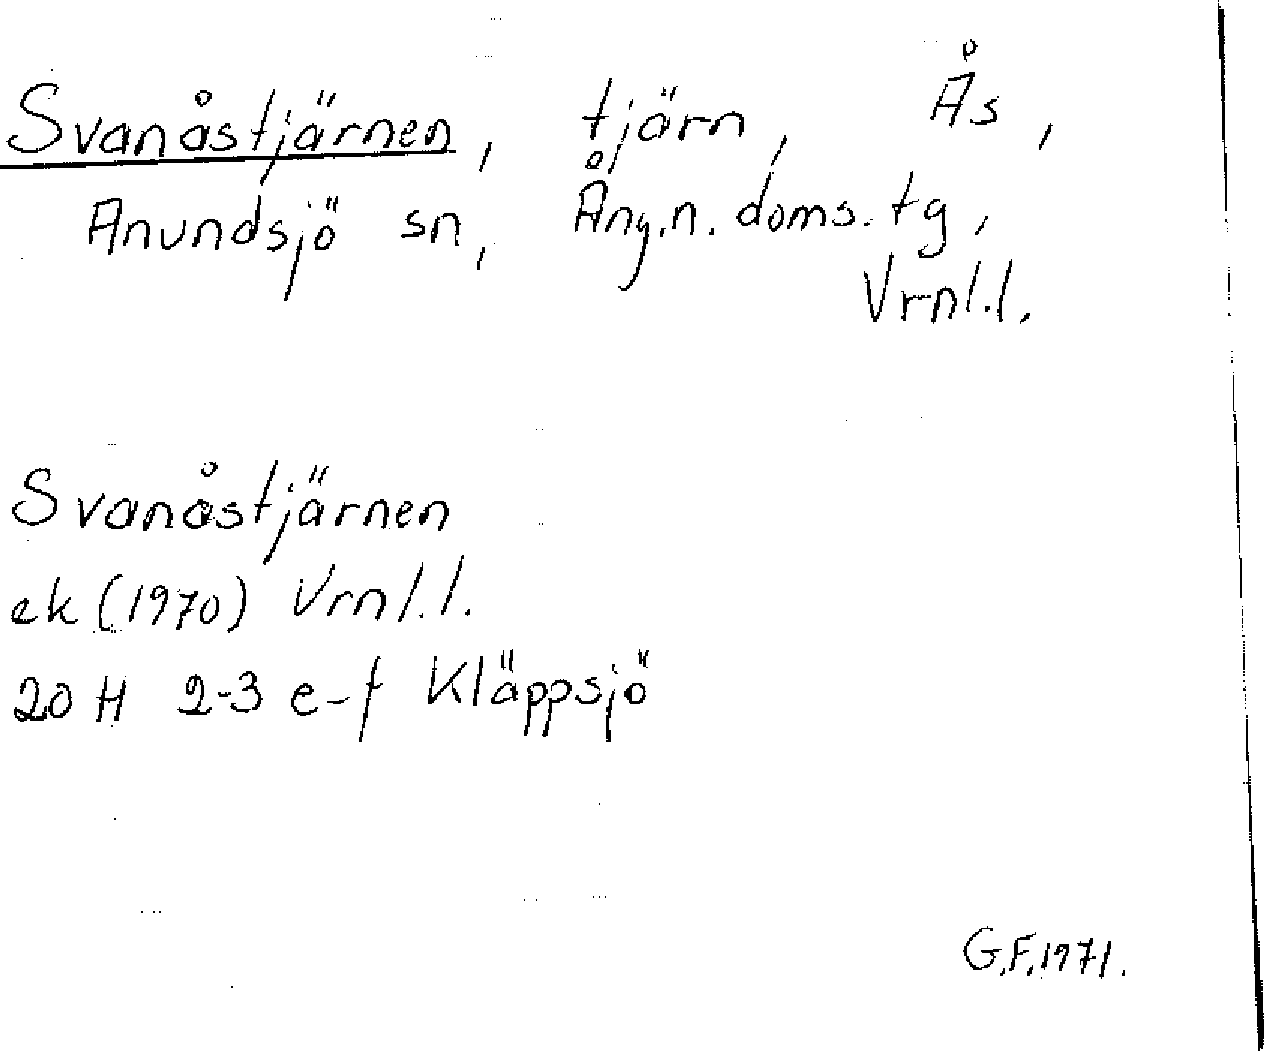 Svanåstjärnen, tjärn, Ås,
Anundsjö sn, Ång.n. doms.tg,
Vrnl.l.
Svanåstjärnen
ek (1970) Vrnl.l.
20 H 2-3 e-f Kläppsjö
G.F.1971.